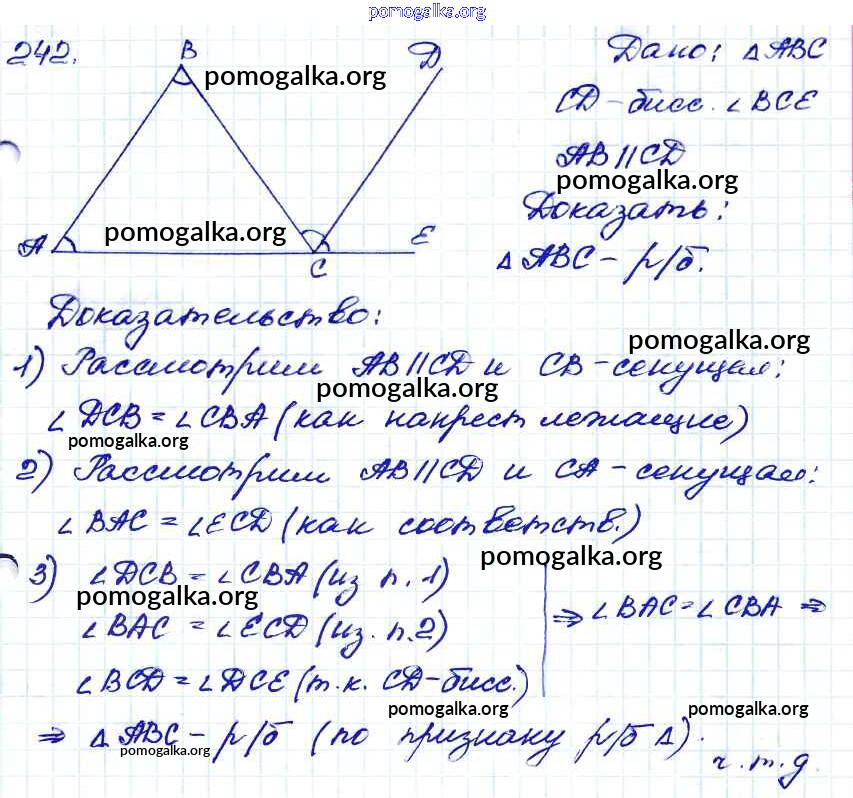 pomogalka.org
242.
B
D
pomogalka.org
A
pomogalka.org
C
E
Дано: △ABC
CD - бисс. ∠BCE
AB || CD
pomogalka.org
Доказать:
△ABC - р/б.
Доказательство:
pomogalka.org
1) Рассмотрим AB || CD и CB - секущая:
pomogalka.org
∠DCB = ∠CBA (как накрест лежащие)
pomogalka.org
2) Рассмотрим AB || CD и CA - секущая:
∠BAC = ∠ECD (как соответств.)
pomogalka.org
3) ∠DCB = ∠CBA (из п. 1)
pomogalka.org
∠BAC = ∠ECD (из. п. 2)
∠BCD = ∠DCE (т.к. CD - бисс.)
⇒ ∠BAC = ∠CBA ⇒
pomogalka.org pomogalka.org
⇒ △ABC - р/б (по признаку р/б △).
pomogalka.org
ч.т.д.